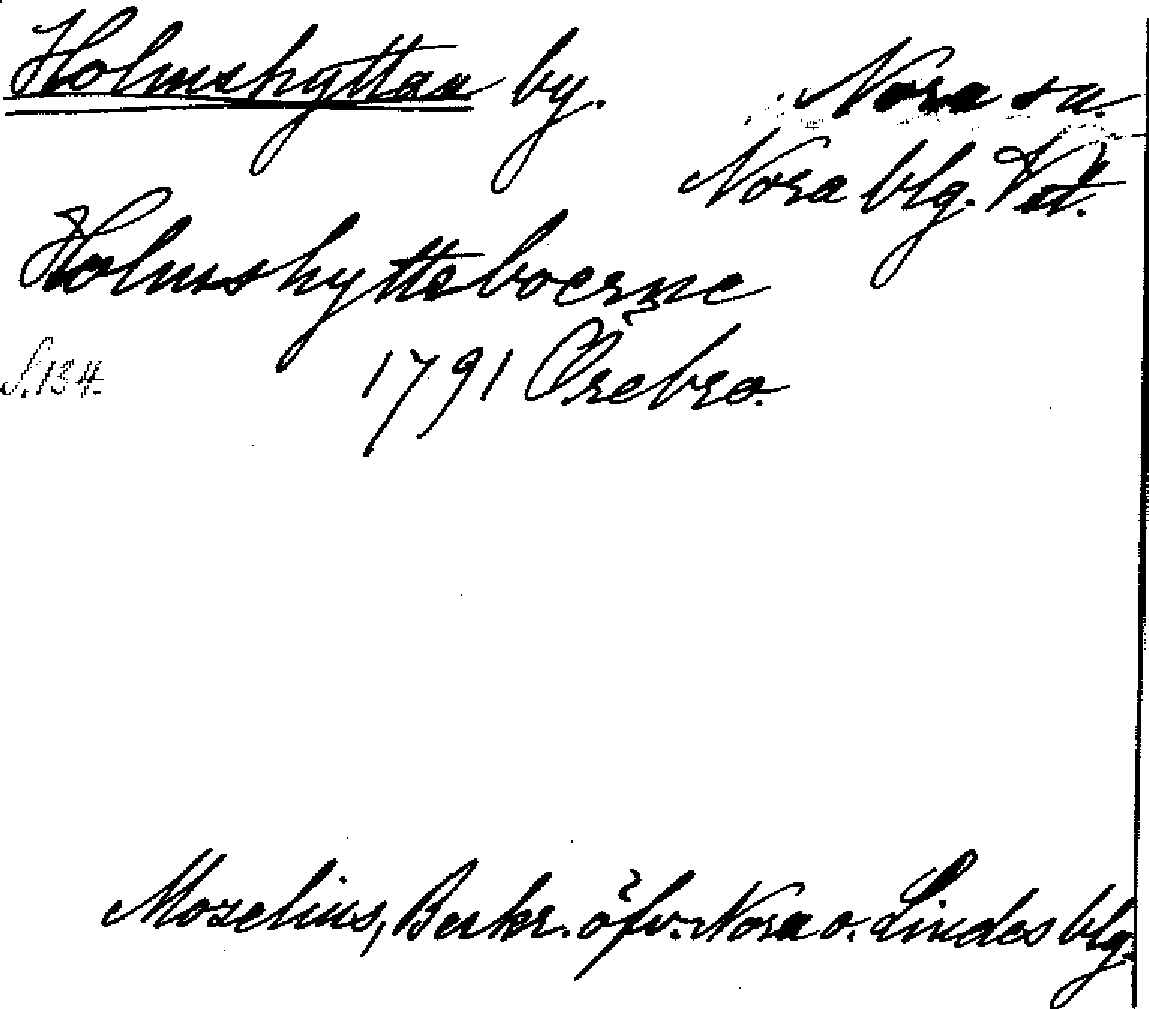 Holmshyttan by.
Nora sn.
Nora blg. Vst.
Holmshytteboerne
S. 134.
1791 Örebro.
Mozelius, Beskr. öfv. Nora o. Lindes blg.